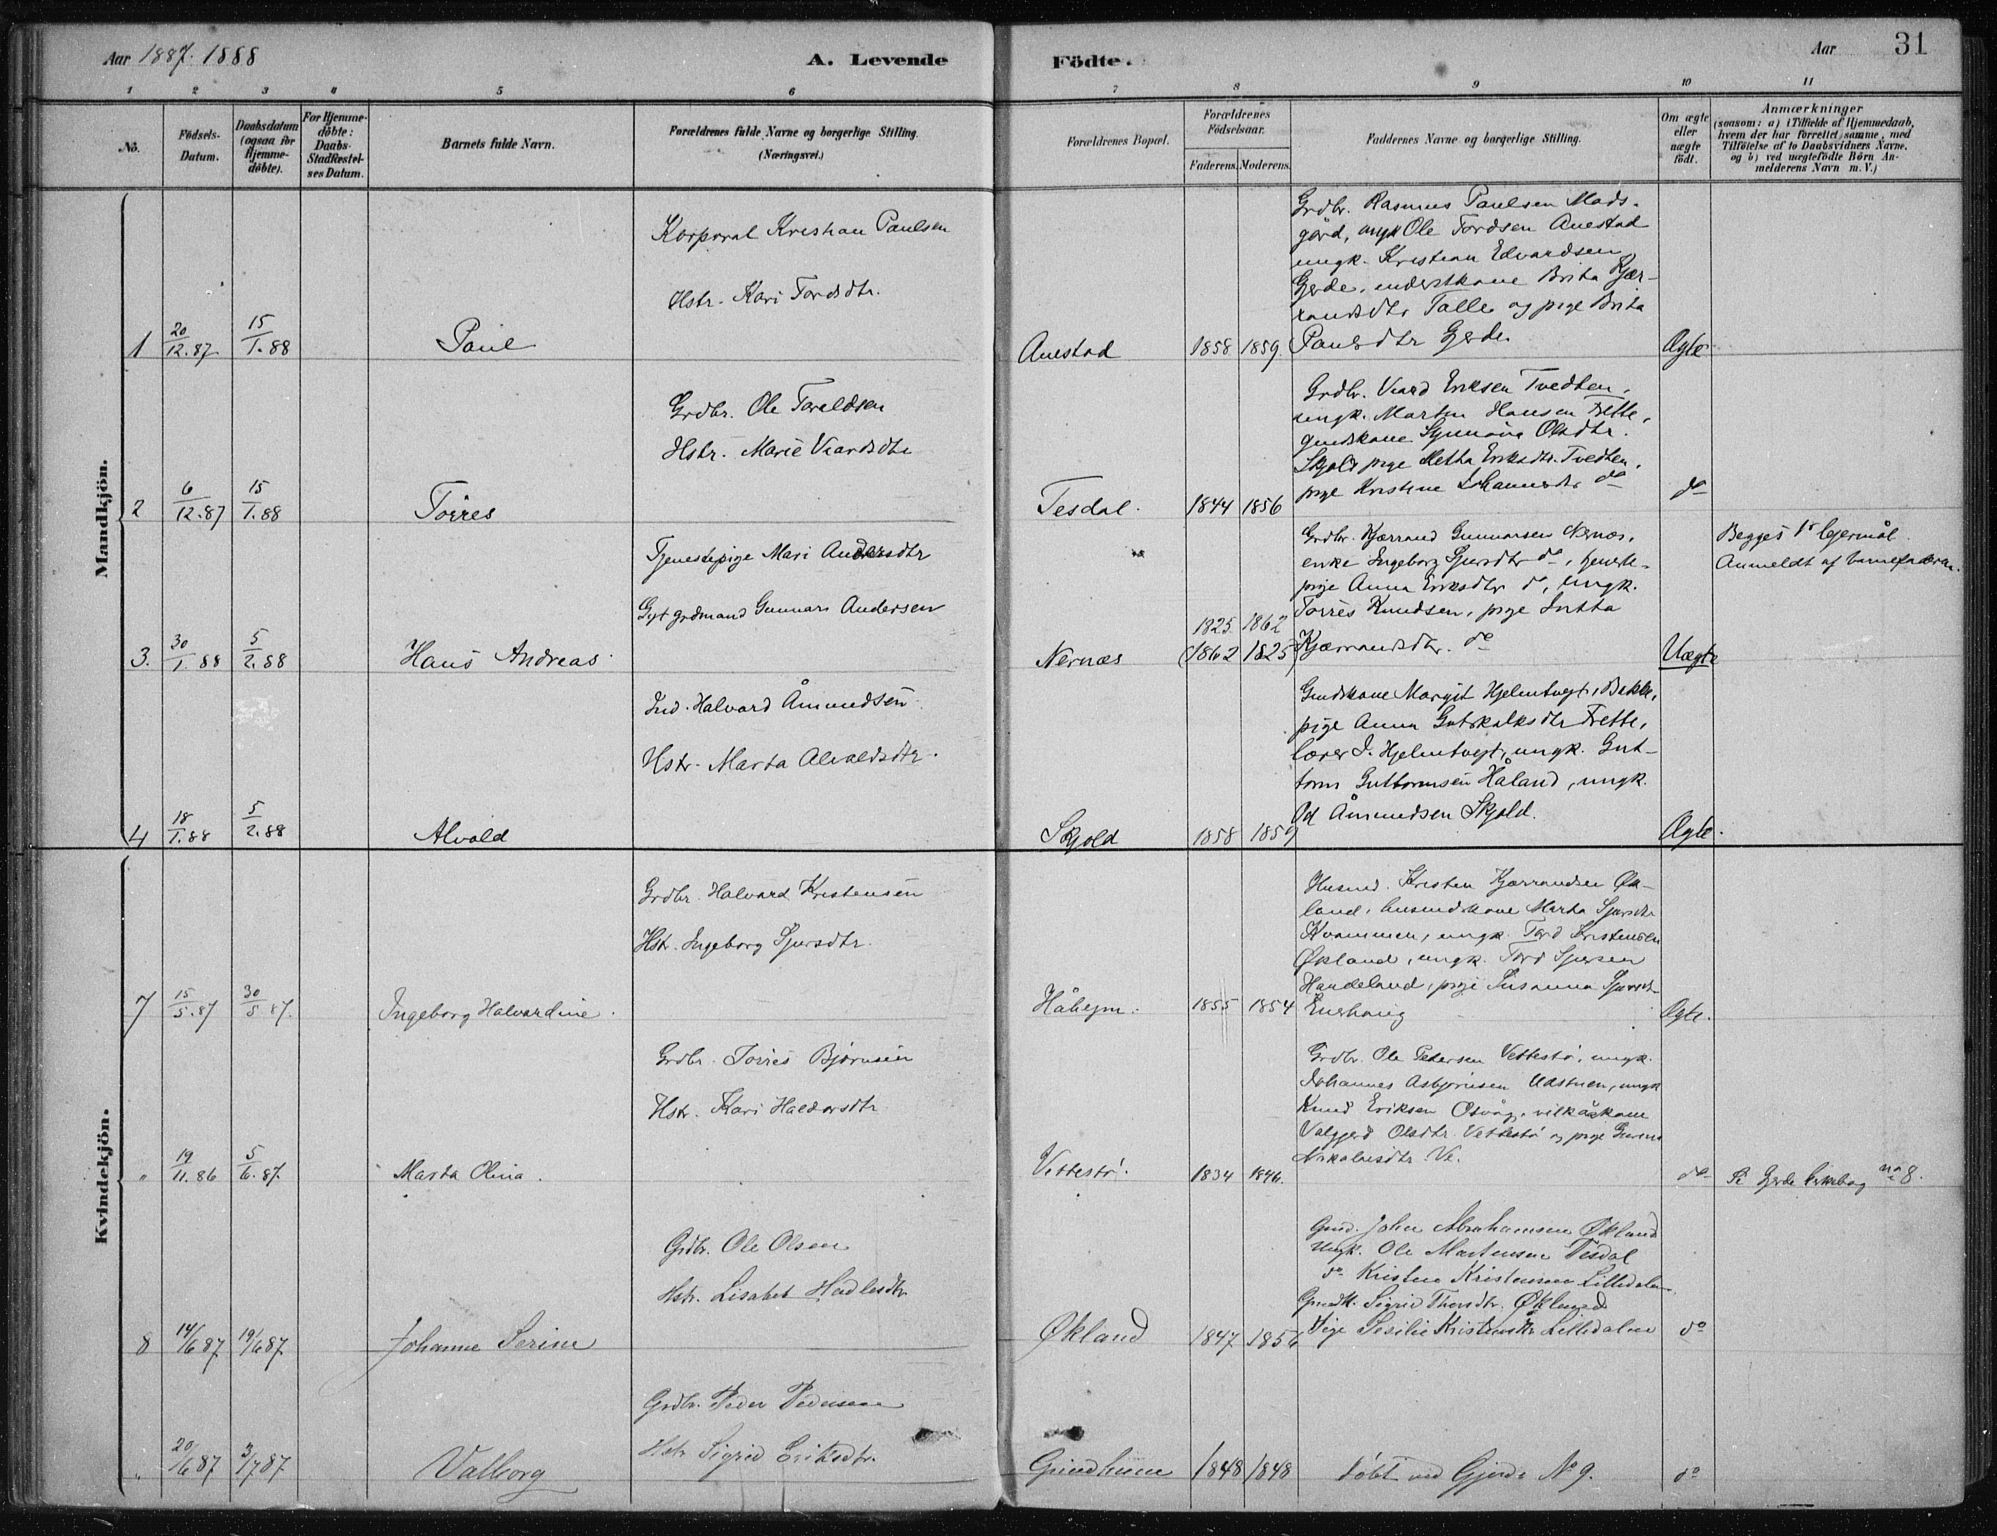 Aar 1887. 1888
A. Levende
Födte.
Aar
31
1 2 3 4 5 6 7 8 9 10 11
No.
Födsels-
Datum.
Daabsdatum
(ogsaa for
Hjemme-
döbte).
For Hjemme-
döbte:
Daabs-
Stadfæstel-
ses Datum.
Barnets fulde Navn.
Forældrenes fulde Navne og borgerlige Stilling.
(Næringsvei.)
Forældrenes Bopæl.
Forældrenes
Födselsaar.
Faderens. Moderens.
Faddernes Navne og borgerlige Stilling.
Om ægte
eller
uægte
födt.
Anmærkninger
(saasom: a) i Tilfælde af Hjemmedaab,
hvem der har forrettet samme, med
Tilföielse af to Daabsvidners Navne.
og b) ved uægtefödte Börn An-
melderens Navn m. V.)
Mandkjön.
1
20/12.87
15/1.88
Paul
Korporal Kristian Paulsen
Hstr. Kari Tordsdtr.
Auestad
1858 1859.
Grdbr. Rasmus Paulsen Mads-
gård, ungk Ole Tordsen Auestad
ungk. Kristian Edvardsen
Gjerde, Brita Kjær-
randsdtr Talle og pige Brita
Paulsdtr Gjerde
Ægte
2
6/12.87
15/1.88
Torres
Grdbr. Ole Toraldsen
Hstr. Marie Viardsdtr
Tesdal.
1844 1856
Grdbr. Viard Eriksen Tvedten,
ungk. Martin Hansen Frette,
gmdskone Synnøva Olsdtr.
Skjold pige Metha Eriksdtr. Tvedten,
pige Kristine Johannesdtr do
do
3.
30/1.88
5/2.88
Hans Andreas.
Tjenestepige Mari Andersdtr
Gift grdmand Gunnar Andersen
Nernæs
1825. 1862
(1862 1825)
Grdbr. Kjærrand Gunnarsen Nernæs,
enke Ingeborg Sjursdtr do, tjeneste-
pige Anna Eriksdtr do, ungk.
Torres Knudsen, pige
Kjærrandsdtr. do
Uægte
Begges 1ste lejermål.
Anmeldt af barnefaderen.
4
18/1.88
5/2.88
Alvald
Ind. Halvard Åmundsen
Hstr. Marta Alvaldsdtr.
Skjold
1858 1859
Gmdskone Margit Hjelmtvegt, Bakke,
pige Anna Gutskalksdtr Frette,
lærer J. Hjelmtvegt, ungk. Gut-
torm Guttormsen Håland, ungk.
Od Åmundsen Skjold.
Ægte.
Kvindekjön.
7
15/5.87
30/5 87.
Ingeborg Halvardine.
Grdbr. Halvard Kristensen
Hstr. Ingeborg Sjursdtr.
Håhejm.
1855 1854
Husmd. Kristen Kjærrandsen Øk-
land, husmdskone Marta Sjursdtr
Kvammen, ungk. Tord Kristensen
Økland, ungk. Tord Sjursen
Handeland, pige Susanna Sjursdtr
Enerhaug
Ægte.
"
19/11.86
5/6.87.
Marta Olina.
Grdbr. Torres Bjørnsen
Hstr. Kari Haldorsdtr
Vettestø.
1834 1846.
Grdbr. Ole Pedersen Vettestø, ungk.
Johannes Asbjørnsen Udstuen, ungk
Knud Eriksen Osvåg, vilkåskone
Valgjerd Olsdtr. Vettestø og pige
Nikolaisdtr. Ve.
do
Se Gjerde kirkebog no 8.
8
14/6 87
19/6 87.
Johanne Serine
Grdbr. Ole Olsen
Hstr. Lisabet Hadlesdtr
Økland
1847 1856
Gmd. John Abrahamsen Økland
Ungk. Ole Martinsen Tesdal
do Kristen Kristensen Lilledalen.
Gmdk. Sigrid Thorsdtr. Økland
Pige Sesilie Kristensdtr Lilledalen
do
"
20/6 87
3/7 87
Valborg
Grdbr. Peder Pedersen
Hstr Sigrid Eriksdtr.
Grindheim
1848 1848
Døbt ved Gjerde No 9.
do